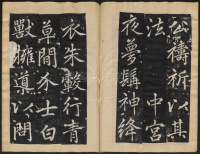 禱祈以其
法 中宮
夜夢神絳
衣朱轂行青
草間介士白
獸擁導以